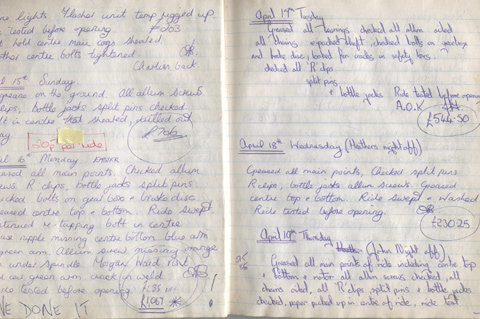 lights. Flasher unit temp rigged up.
tested before opening £263
hold centre main cogs sheared
other centre bolts tightened
Charlie's back.
15th Sunday.
grease on the ground. All allum screws
clips, bottle jacks split pins checked
in centre that sheared, drilled out
£706
20p per ride
16th Monday
greased all main points. Checked allum
R clips, bottle jacks split pins
checked bolts on gear box + brake disc
greased centre top + bottom. Ride swept.
continued re-tapping bolt in centre
nipple missing centre bottom blue arm
green arm. Allum screw missing orange
under spindle.
red green arm crack in weld
tested before opening
£1,067
WE DONE IT
April 17th Tuesday
Greased all bearings checked all allum
all chains checked bolts on gearbox
and brake disc, looked for cracks on safety bars
checked all R clips
split pins
+ bottle jacks Ride tested before opening
A.O.K
£544.50
April 18th Wednesday (Heathers night off)
Greased all main points, Checked split pins
R clips, bottle jacks allum screws. Greased
centre top + bottom. Ride swept + Washed
Ride tested before opening.
£230.25
April 19th Thursday (John Night off)
Greased all main points of ride including centre top
+ bottom + motor all allum screws checked, all
chains oiled, all R clips split pins + bottle jacks
checked, paper picked up in centre of ride, ride test